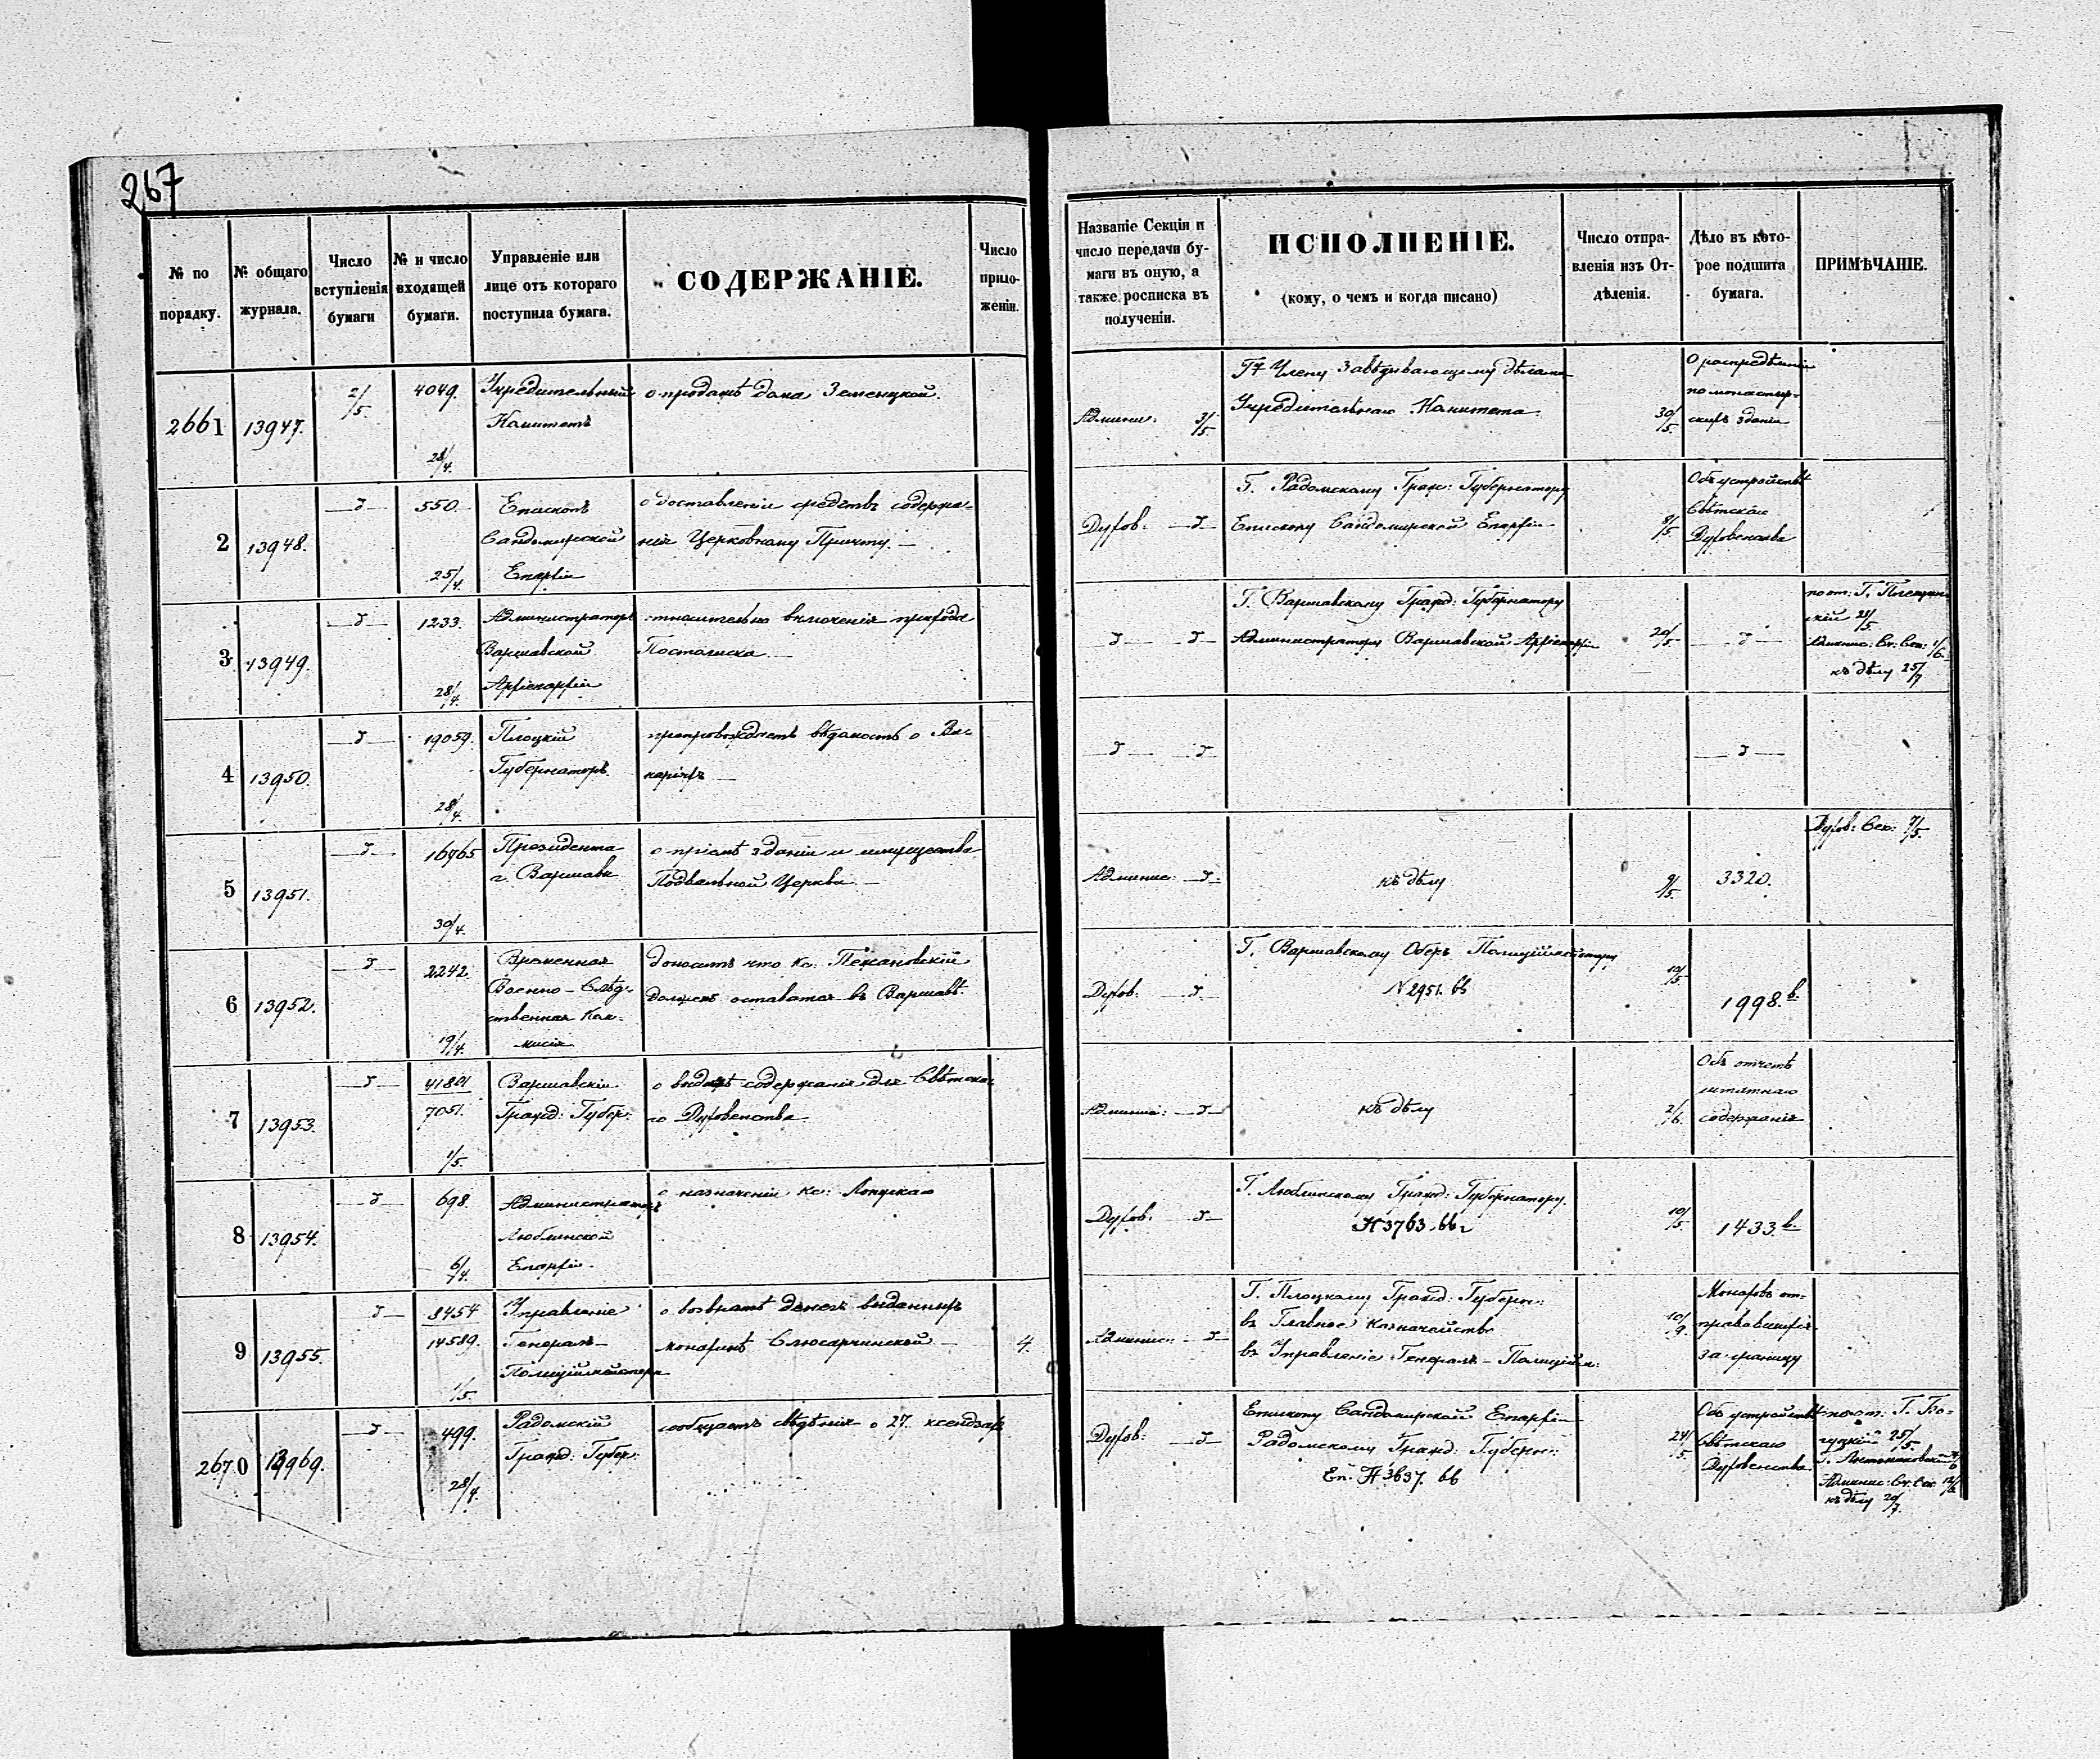 267
№ по порядку.
№ общаго журнала.
Число вступленія бумаги
№ и число входящей бумаги.
Управленіе или лице отъ котораго поступила бумага.
СОДЕРЖАНІЕ.
Число прило-женіи.
Названіе Секціи и число передачи бу-маги въ оную, а также росписка въ полученіи.
ИСПОЛНЕНІЕ.
(кому, о чемъ и когда писано)
Число отпра-вленія изъ От-дѣленія.
Дѣло въ кото-рое подшита бумага.
ПРИМѢЧАНІЕ.
2661 13947. 2/5. 4049. 28/4.
Учредительный
Комитетъ
о продажѣ дома
Админис. 3/5.
Члену Завѣдывающему дѣлами
Учредительнаго Комитета.
30/5.
О распредѣленіи
по монастыр-
скихъ зданіи
2 13948. —д— 550. 25/4.
Епископъ
Сандомирской
Епархіи
о доставленіи средствъ содержа-
нія Церковному Причту. —
Духов. —д—
Г. Радомскому Граж: Губернатору
Епископу Сандомирской Епархіи
8/5.
Объ устройствѣ
Свѣтскаго
Духовенства
3 13949. —д— 1233. 28/4.
Администраторъ
Варшавской
Архіепархіи
относительно включенія прихода
—д— —д
Г. Варшавскому Гражд: Губернатору
Администратору Варшавской Архіепархіи
20/5.
—д—
по от: Г.
къ дѣлу 25/7
4 13950. —д— 19059. 28/4.
Плоцкій
Губернаторъ
препровождаетъ вѣдомость о Ви-
каріяхъ —
—д— —д
—д—
5 13951. —д— 16965 30/4
Президента
г. Варшавы
о пріемѣ зданіи и имущества
Подвальной Церкви —
Админис. —д—
къ дѣлу
9/5.
3320.
Духов: Сек: 7/5.
6 13952. —д— 2242. 19/4.
Временная
Военно-Слѣд-
ственная Ком-
мисія
доноситъ что кс.
долженъ оставатся въ Варшавѣ.
Духов. —д—
Г. Варшавскому Оберъ Полиціймейстеру
N 2951. 66
10/5.
1998. в.
7 13953. —д— 41801 7051. 1/5.
Варшавскій
Гражд: Губер:
о выдачѣ содержанія для Свѣтска-
го Духовенства
Админис: —д—
къ дѣлу
2/6.
Объ отчетѣ
штатнаго
содержанія
8 13954. —д— 698. 6/4.
Администраторъ
Люблинской
Епархіи
о назначеніи кс:
Духов. —д—
Г. Люблинскому Гражд: Губернатору.
N 3763. 66 г
10/5
1433. в.
9 13955. —д— 8454 14589. 1/5.
Управленіе
Генералъ-
Полиціймейстера
о возвратѣ денегъ выданныхъ
монахинѣ — 4.
Админис: —д—
Г. Плоцкому Гражд: Губерн:
въ Главное Казначейство
въ Управленіе Генералъ-Полиційм:
10/9.
Монаховъ от-
правившихся
за границу
2670 13969. —д— 499. 28/4.
Радомскій
Гражд: Губер:
сообщаетъ свѣдѣнія о 27. ксендзахъ
Духов: —д—
Епископу Сандомирской Епархіи
Радомскому Гражд: Губерн:
Еп. N 3637. 66
24/5.
Объ устройствѣ
Свѣтскаго
Духовенства
по от: Г.
25/5.
къ дѣлу 20/7.